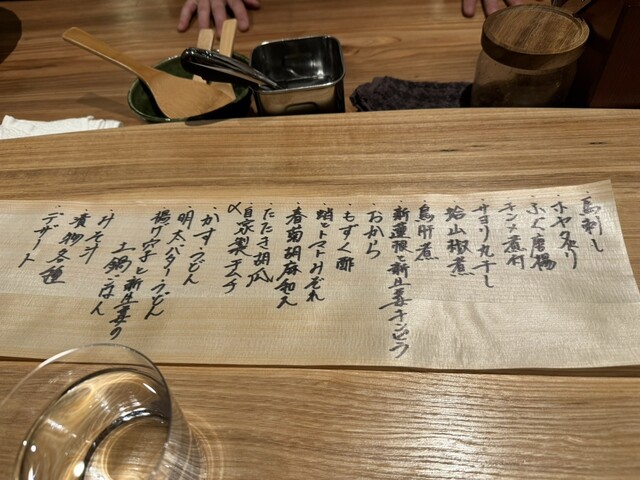 ・馬刺し
・ホヤ炙り
・ふぐ唐揚
・キンメ煮付
・サヨリ丸干し
・蛤山椒煮
・鳥肝煮
・新蓮根と新生姜キンぴら
・おから
・もずく酢
・蛸とトマトみぞれ
・春菊胡麻和え
・たたき胡瓜
〆自家製キムチ
・かすうどん
・明太バターうどん
・揚げ穴子と新生姜の
土鍋ごはん
・みそ汁
・漬物各種
・デザート